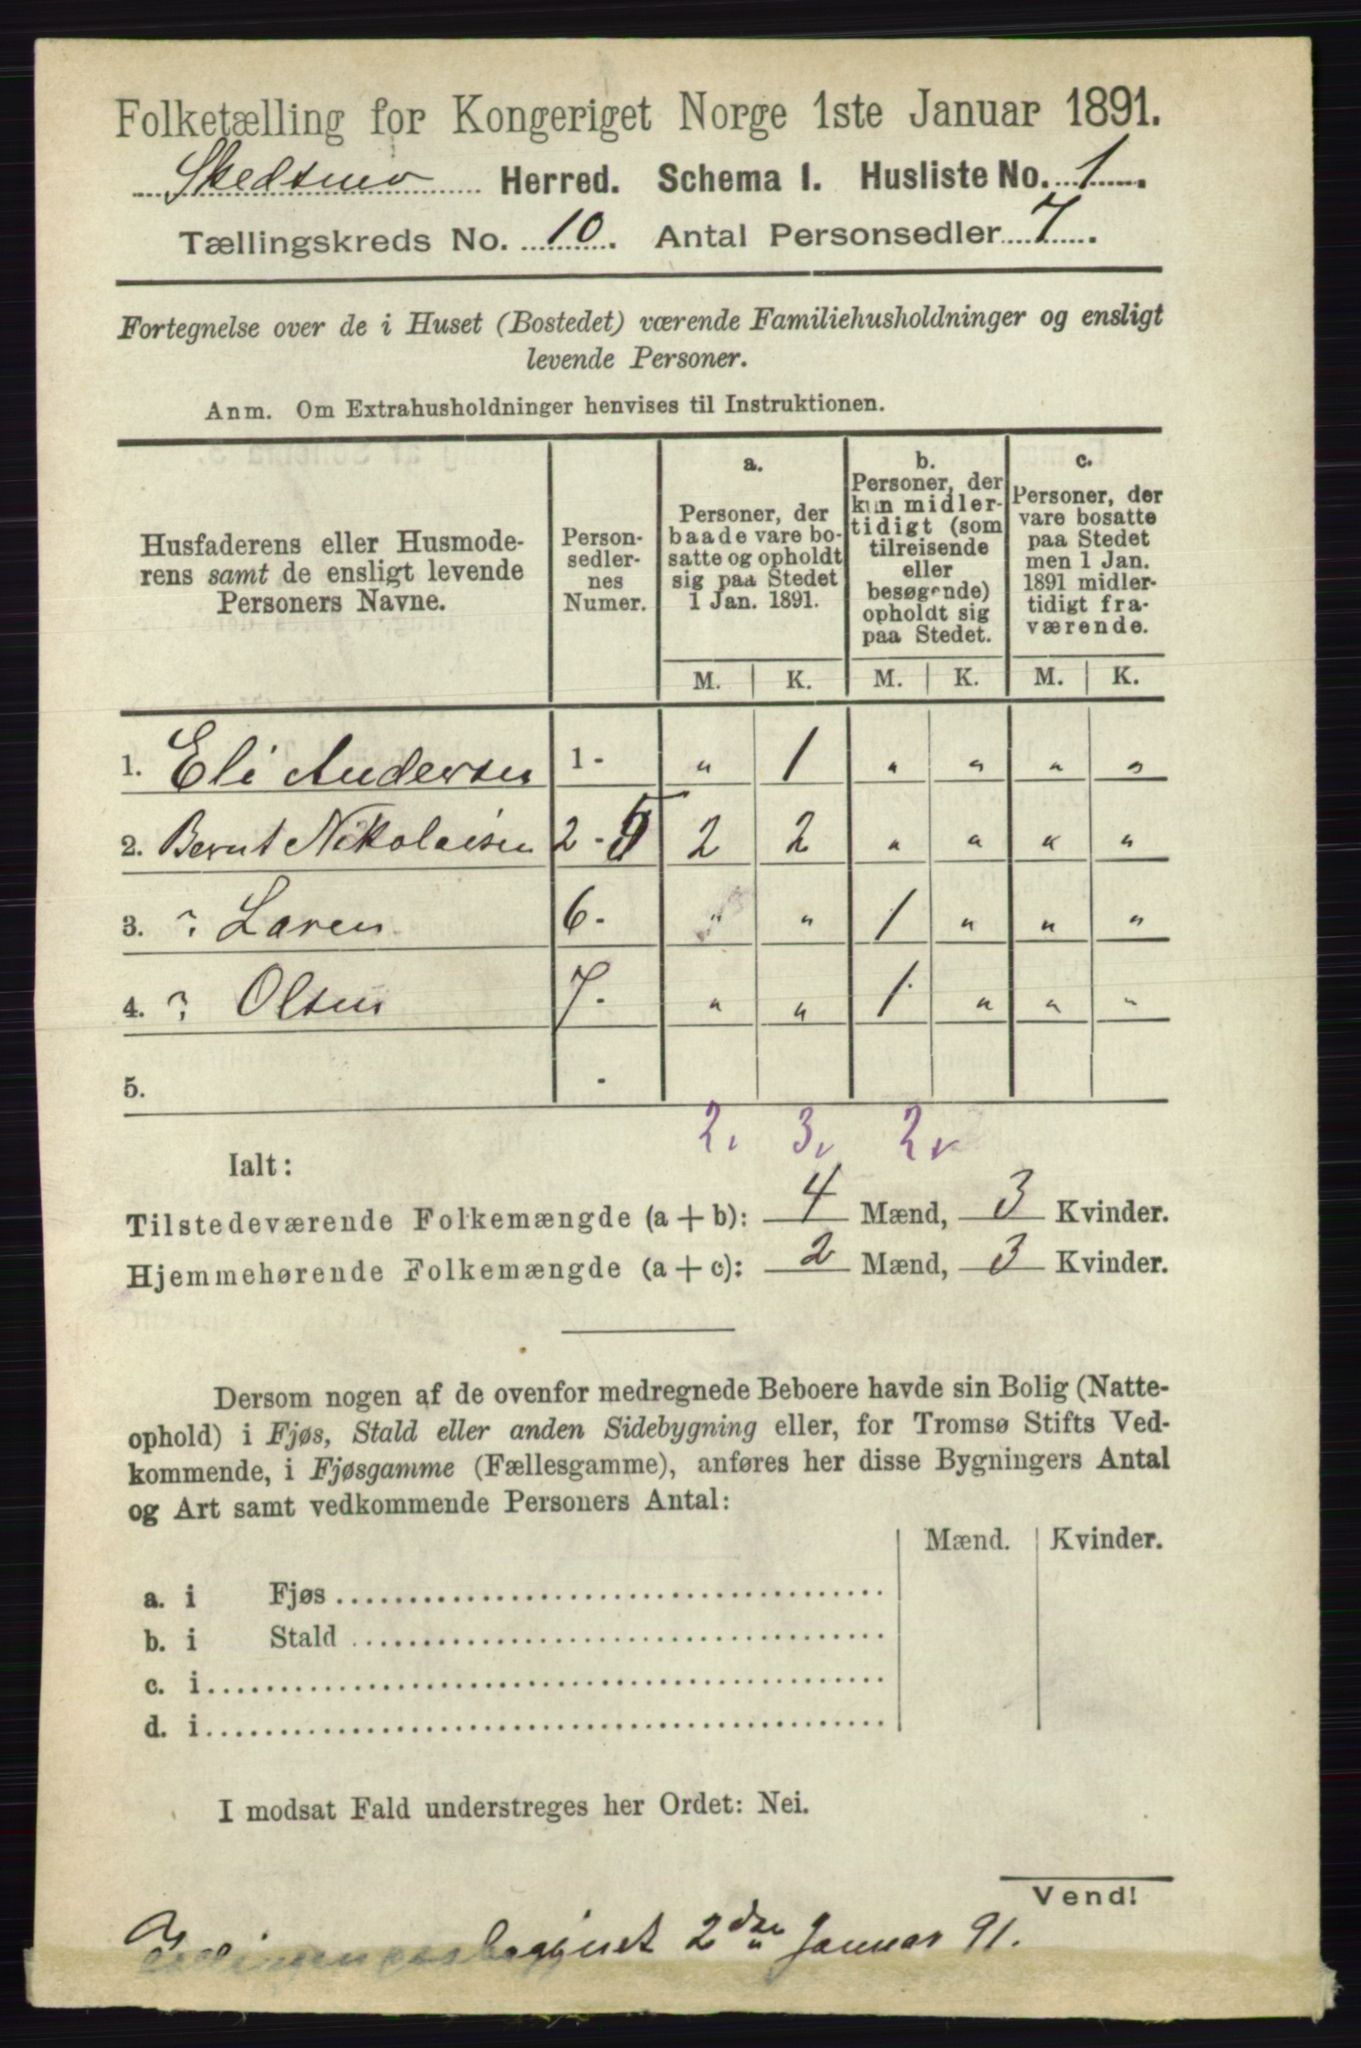 Folketælling for Kongeriget Norge 1ste Januar 1891.
Skedsmo Herred. Schema I. Husliste No. 1.
Tællingskreds No. 10. Antal Personsedler 7.
Fortegnelse over de i Huset (Bostedet) værende Familiehusholdninger og ensligt
levende Personer.
Anm. Om Extrahusholdninger henvises til Instruktionen.
Husfaderens eller Husmode-
rens samt de ensligt levende
Personers Navne.
Person-
sedler-
nes
Numer.
a.
Personer, der
baade vare bo-
satte og opholdt
sig paa Stedet
1 Jan. 1891.
b.
Personer, der
kun midler-
tidigt (som
tilreisende
eller
besøgende)
opholdt sig
paa Stedet.
c.
Personer, der
vare bosatte
paa Stedet
men 1 Jan.
1891 midler-
tidigt fra-
værende.
M. K. M. K. M. K.
1. Eli Andersen 1 - " 1 " " " "
2. Bernt Nikolaisen 2 - 5 2 2 " " " "
3. ? Laren 6 - " " 1 " " "
4. ? Olsen 7 - " " 1 " " "
5. -
2 3 2
Ialt:
Tilstedeværende Folkemængde (a + b): 4 Mænd, 3 Kvinder.
Hjemmehørende Folkemængde (a + c): 2 Mænd, 3 Kvinder.
Dersom nogen af de ovenfor medregnede Beboere havde sin Bolig (Natte-
ophold) i Fjøs, Stald eller anden Sidebygning eller, for Tromsø Stifts Ved-
kommende, i Fjøsgamme (Fællesgamme), anføres her disse Bygningers Antal
og Art samt vedkommende Personers Antal:
Mænd. Kvinder.
a. i Fjøs
b. i Stald
c. i
d. i
I modsat Fald understreges her Ordet: Nei.
Vend!
2den Januar 91.